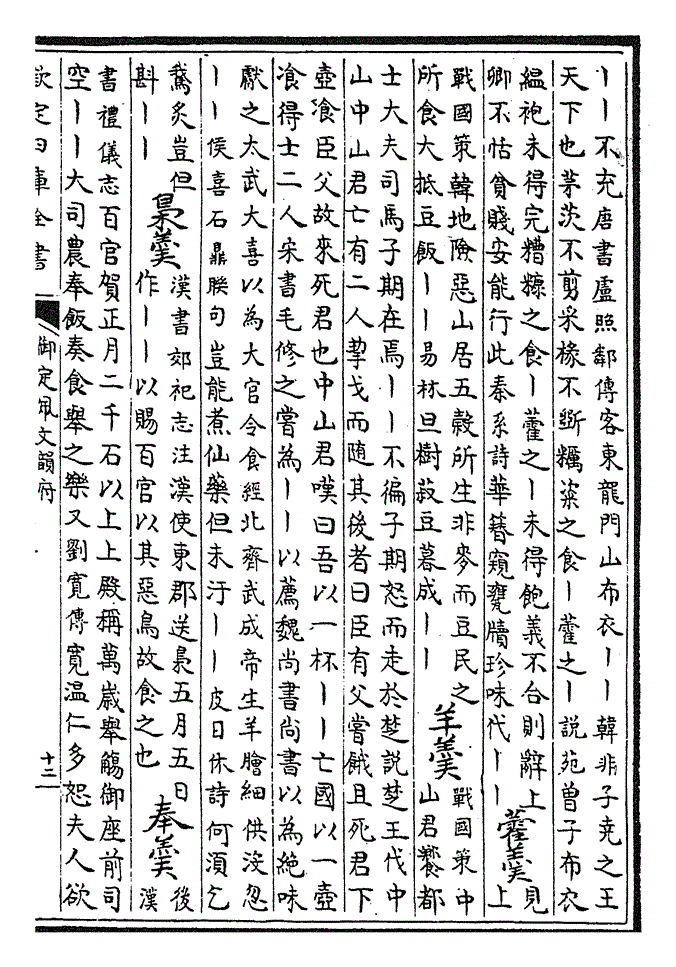 丨丨不充唐書盧照鄰傳客東龍門山布衣丨丨韓非子堯之王
天下也茅茨不剪采椽不斵糲粢之食丨藿之丨說苑曾子布衣
縕袍未得完糟糠之食丨藿之丨未得飽義不合則辭上
卿不恬貧賤安能行此秦系詩華簪窺甕牖珍味代丨丨
藿羹
見
上
戰國策韓地險惡山居五穀所生非麥而豆民之
所食大抵豆飯丨丨易林旦樹菽豆暮成丨丨
羊羹
戰國策中
山君饗都
士大夫司馬子期在焉丨丨不徧子期怒而走於楚說楚王伐中
山中山君亡有二人挈戈而隨其後者曰臣有父嘗餓且死君下
壺飡臣父故來死君也中山君嘆曰吾以一杯丨丨亡國以一壺
飡得士二人宋書毛修之嘗為丨丨以薦魏尚書尚書以為絶味
獻之太武大喜以為大官令食經北齊武成帝生羊膾細供沒忽
丨丨侯喜石鼎聯句豈能煮仙藥但未汙丨丨皮日休詩何須乞
鵞炙豈但
斟丨丨
梟羹
漢書郊祀志注漢使東郡送梟五月五日
作丨丨以賜百官以其惡鳥故食之也
奉羹
後
漢
書禮儀志百官賀正月二千石以上上殿稱萬歲舉觴御座前司
空丨丨大司農奉飯奏食舉之樂又劉寬傳寬溫仁多恕夫人欲
欽定四庫全書
御定佩文韻府
十三